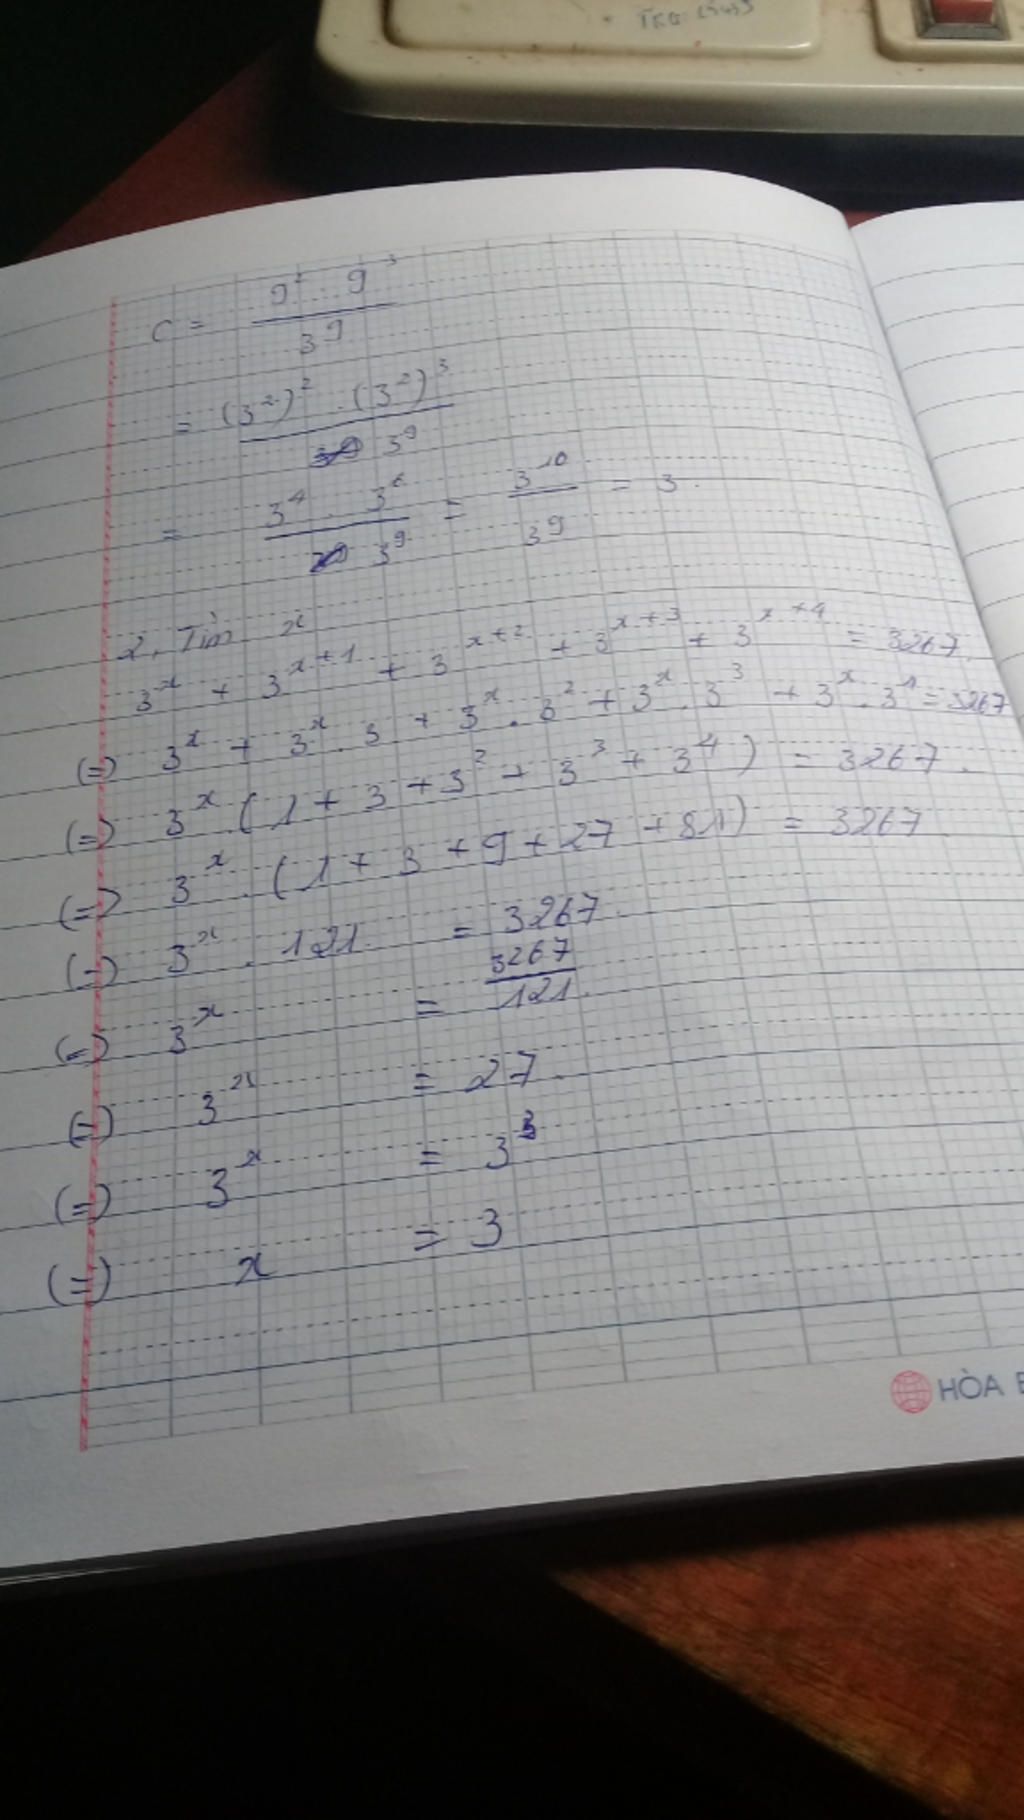 C = \frac{9^2 . 9^3}{3^9}
= \frac{(3^2)^2 . (3^2)^3}{3^9}
= \frac{3^4 . 3^6}{3^9} = \frac{3^{10}}{3^9} = 3.
2, Tìm x
3^x + 3^{x+1} + 3^{x+2} + 3^{x+3} + 3^{x+4} = 3267.
(=) 3^x + 3^x . 3 + 3^x . 3^2 + 3^x . 3^3 + 3^x . 3^4 = 3267
(=) 3^x . (1 + 3 + 3^2 + 3^3 + 3^4) = 3267.
(=) 3^x . (1 + 3 + 9 + 27 + 81) = 3267
(=) 3^x . 121 = 3267.
(=) 3^x = \frac{3267}{121}.
(=) 3^x = 27.
(=) 3^x = 3^3
(=) x = 3
HÒA